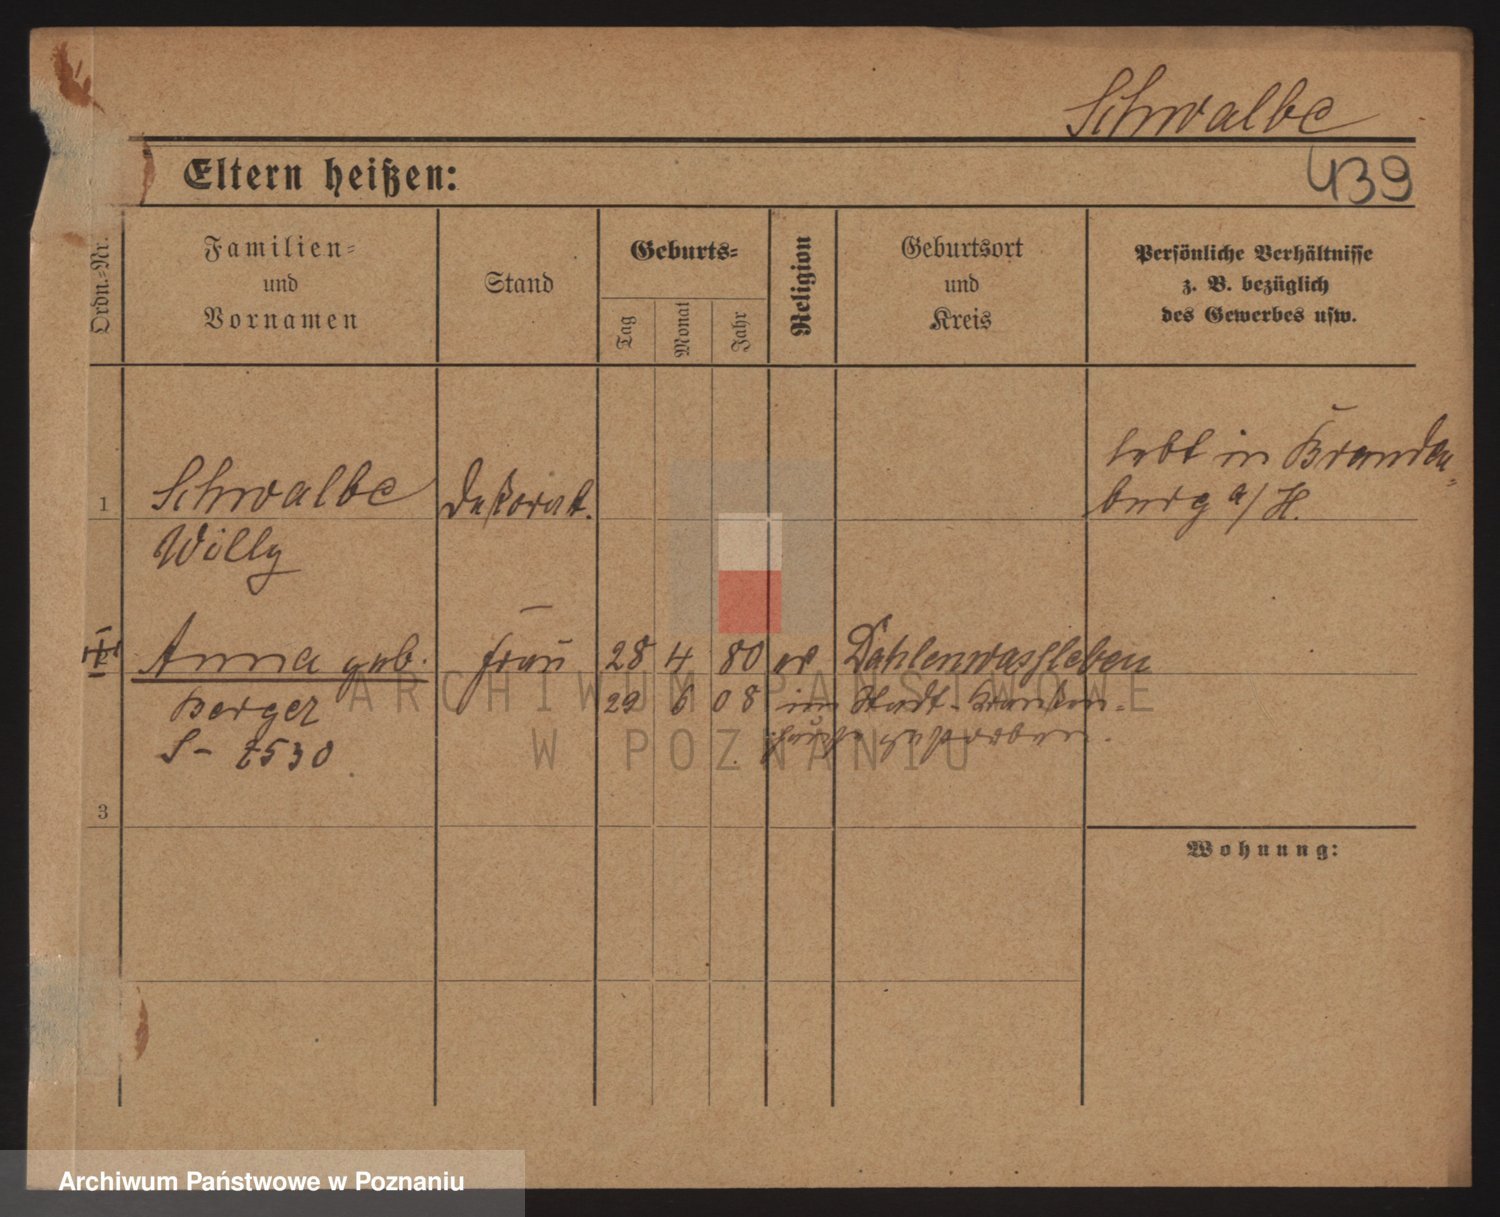 Schwalbe
Eltern heißen:
439
Ordn.=Nr.
Familien=
und
Vornamen
Stand
Geburts=
Tag
Monat
Jahr
Religion
Geburtsort
und
Kreis
Persönliche Verhältnisse
z. B. bezüglich
des Gewerbes usw.
1
Schwalbe
Willy
Dekorat.
lebt in Branden=
burg a/H.
Anna geb.
Berger
Frau
28 4 80 ev Dahlenwarsleben
29 6 08 im Stadt-Kranken-
hause gestorben.
3
Wohnung:
ARCHIWUM PAŃSTWOWE
W POZNANIU
Archiwum Państwowe w Poznaniu